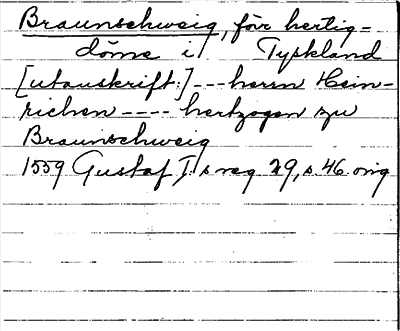 Braunschweig, förr hertig-
döme i Tyskland
[utanskrift:] --- herrn Hein-
richen ---- hertzogen zu
Braunschweig
1559 Gustaf I:s reg 29, s. 46. orig